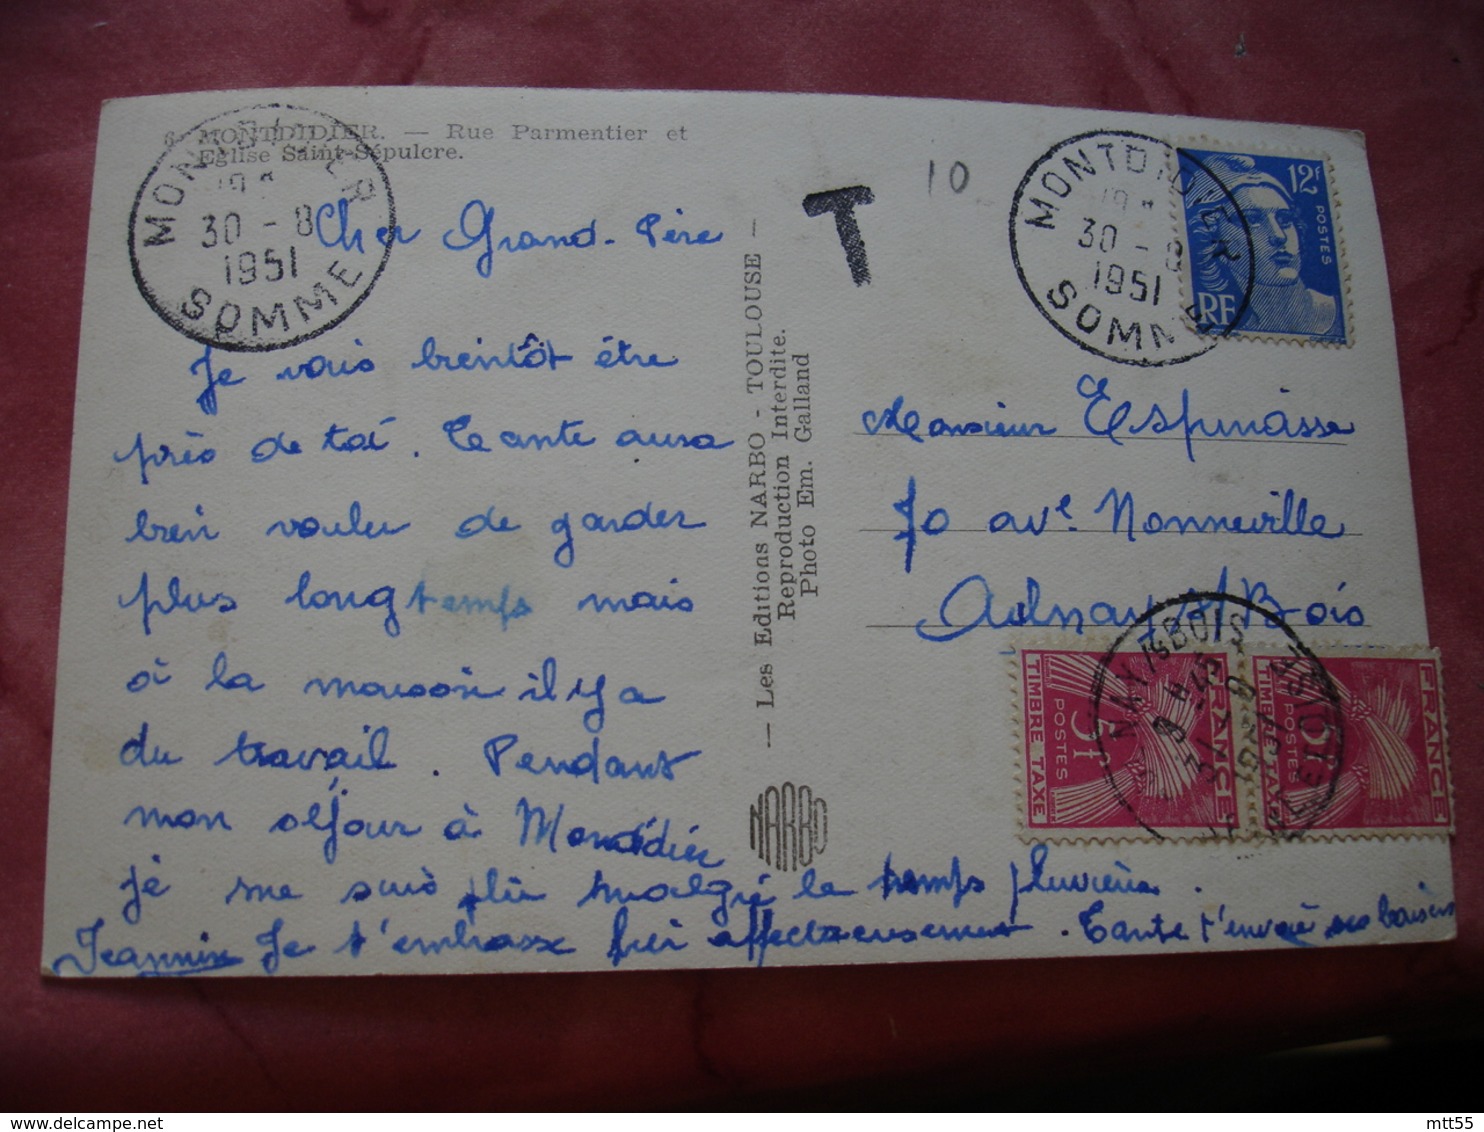 6 - MONTDIDIER. — Rue Parmentier et
Eglise Saint-Sépulcre.
MONTDIDIER
30 - 8
1951
SOMME
Cher Grand-Père
Je vais bientôt être
près de toi. Ta tante aura
bien voulu de garder
plus longtemps mais
à la maison il y a
du travail. Pendant
mon séjour à Montdidier
je me suis plu malgré le temps pluvieux.
Jeannine Je t'embrasse bien affectueusement. Tante t'envoie ses baisers
— Les Editions NARBO - TOULOUSE —
Reproduction Interdite.
Photo Em. Galland
NARBO
T
10
MONTDIDIER
30 - 8
1951
SOMME
12f
POSTES
RF
Monsieur Espinasse
70 ave Nonneville
Aulnay s/Bois
TIMBRE TAXE
POSTES
5f
FRANCE
TIMBRE TAXE
POSTES
5f
FRANCE
AULNAY S BOIS
mtt55